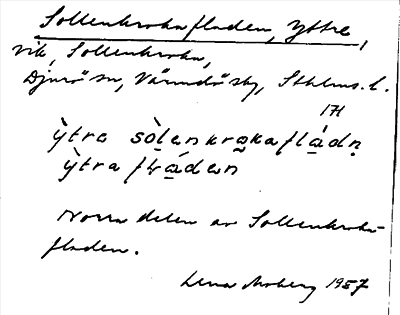 Sollenkrokafladen, Yttre,
vik, Sollenkroka,
Djurö sn, Värmdö skg, Sthlms. l.
171
ỳtra sòlenkrakafládn̥
ỳtra fláden
Norra delen av Sollenkroka-
fladen.
Lena Moberg 1957